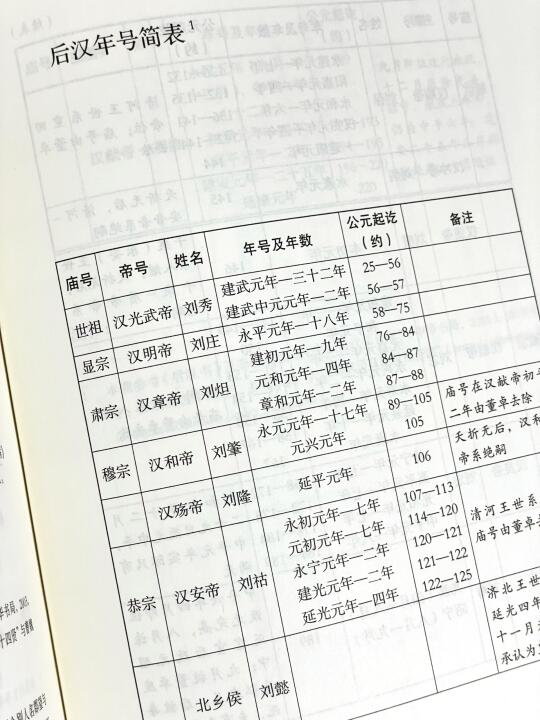 后汉年号简表1
庙号 帝号 姓名 年号及年数 公元起讫（约） 备注
世祖 汉光武帝 刘秀 建武元年—三十二年 25—56
建武中元元年—二年 56—57
显宗 汉明帝 刘庄 永平元年—十八年 58—75
肃宗 汉章帝 刘炟 建初元年—九年 76—84
元和元年—四年 84—87
章和元年—二年 87—88
穆宗 汉和帝 刘肇 永元元年—十七年 89—105 庙号在汉献帝初
元兴元年 105 二年由董卓去除
汉殇帝 刘隆 延平元年 106 夭折无后，汉和
帝系绝嗣
恭宗 汉安帝 刘祜 永初元年—七年 107—113 清河王世系
元初元年—七年 114—120 庙号由董卓
永宁元年—二年 120—121
建光元年—二年 121—122
延光元年—四年 122—125
北乡侯 刘懿 济北王世
延光四年
十一月
承认为
华书局，2015
十四贤”与曹魏